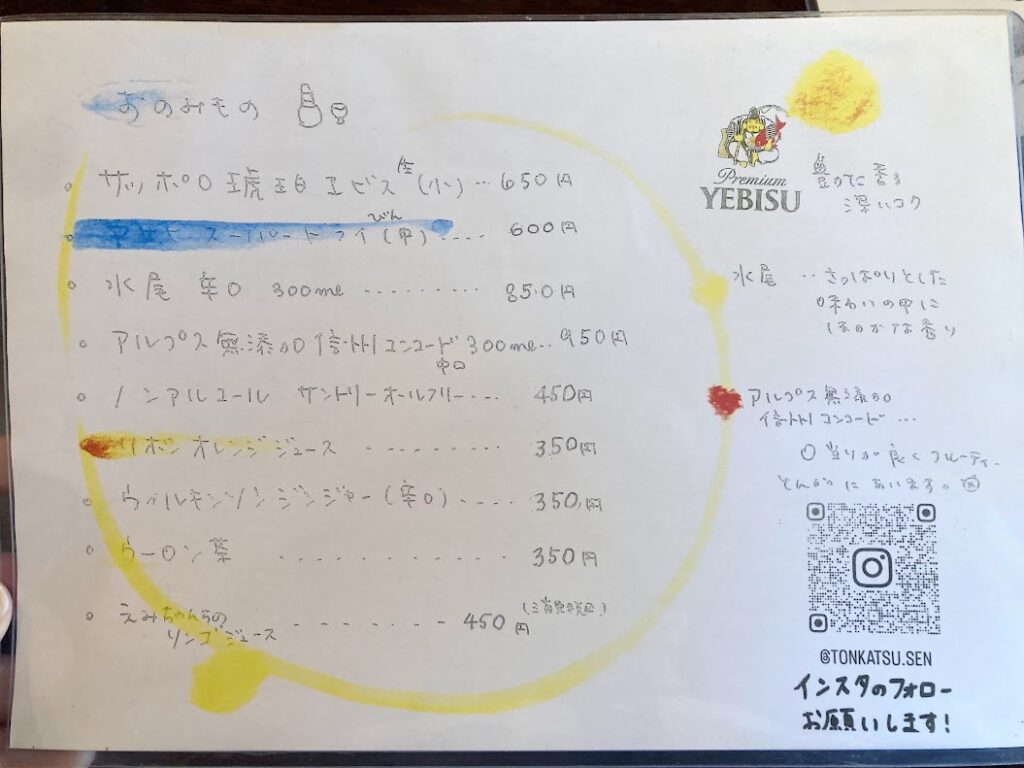 おのみもの
サッポロ 琥珀 エビス 生 (小) … 650円
アサヒ スーパードライ びん (中) .... 600円
水尾 辛口 300ml ......... 850円
アルプス 無添加 信州コンコード 300ml .. 950円
中口
ノンアルコール サントリーオールフリー .... 450円
リボン オレンジジュース ........ 350円
ウィルキンソン ジンジャー (辛口) .... 350円
ウーロン茶 .......... 350円
えみちゃんちの
リンゴジュース ....... 450円
Premium
YEBISU
豊かに香る
深いコク
水尾 .. さっぱりとした
味わいの中に
ほのかな香り
アルプス 無添加
信州コンコード …
口当りが良くフルーティ.
とんかつにあいます。
@TONKATSU.SEN
インスタのフォロー
お願いします!